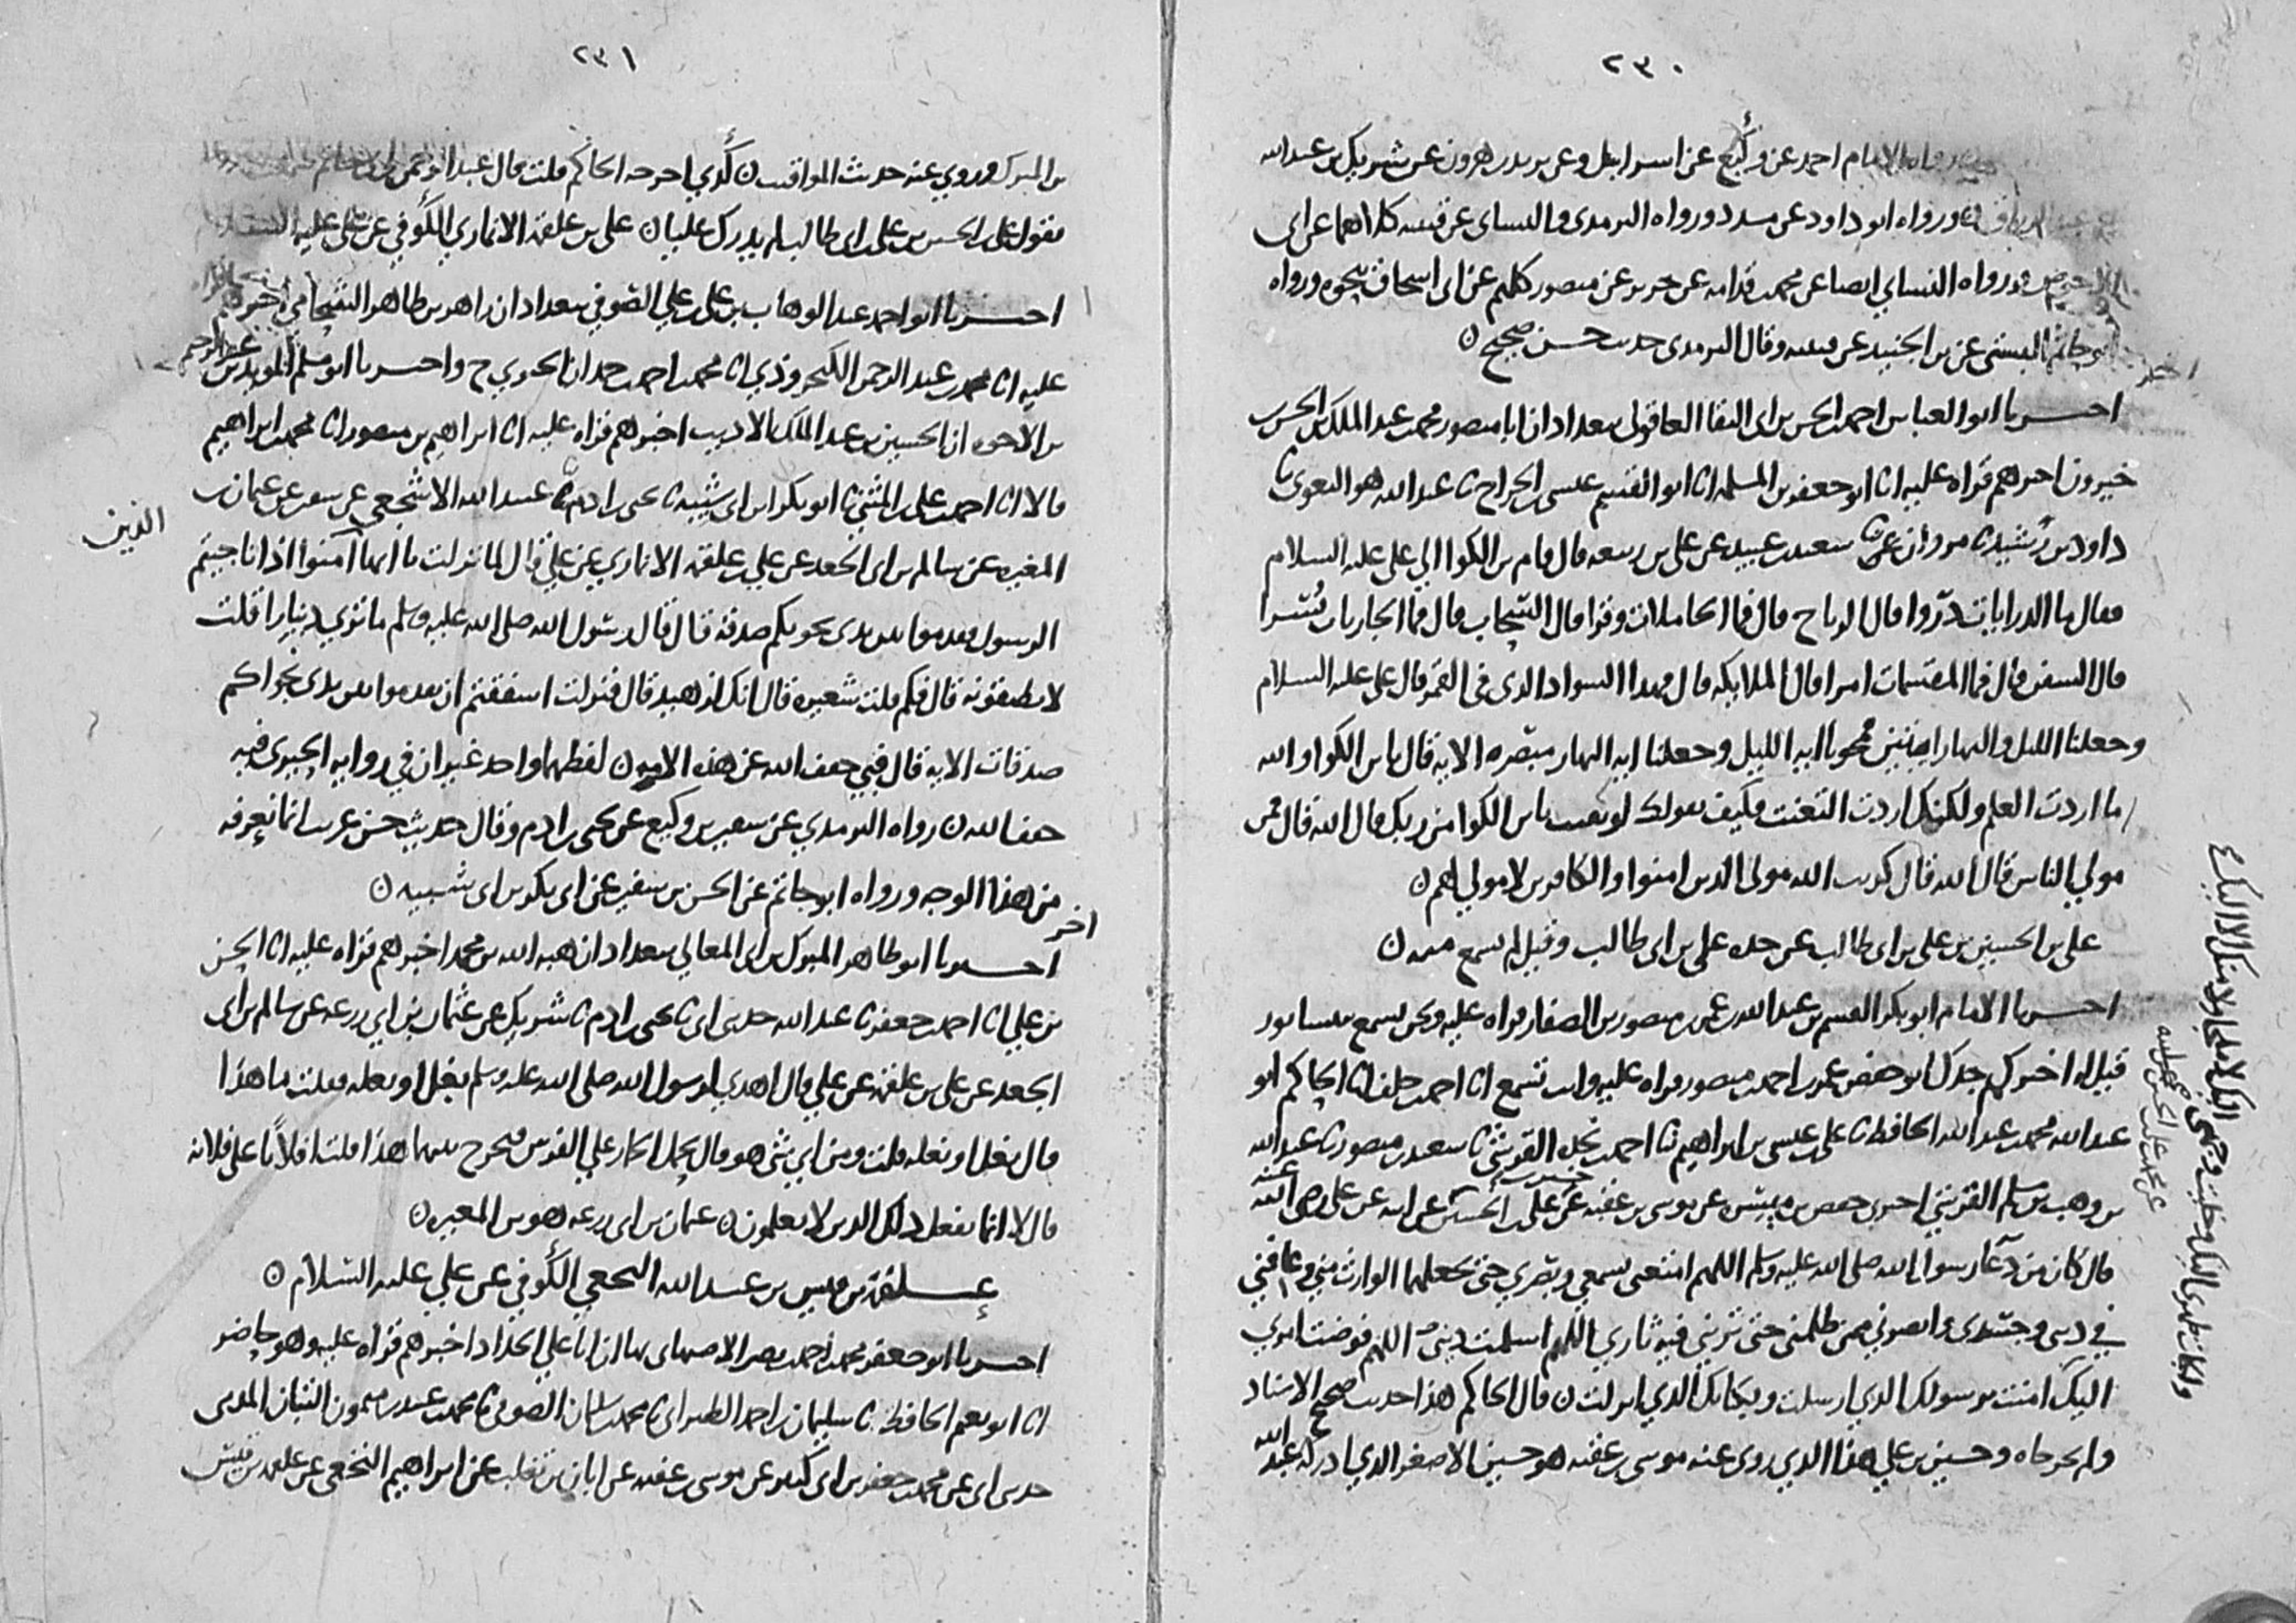 ٢٣٠
رواه الامام احمد عن وكيع عن اسرائيل وعن يزيد بن هرون عن شريك بن عبدالله
ورواه ابو داود عن مسدد ورواه الترمذي والنساي عن قتيبه كلاهما عن ابي
الاحوص ورواه النساي ايضا عن محمد بن قدامه عن جرير عن منصور كلهم عن ابي اسحاق بنحوه ورواه
ابو حاتم البستي عن بن الجنيد عن قتيبه وقال الترمذي حديث حسن صحيح ن
اخر
اخبرنا ابو العباس احمد بن الحسن بن ابي البقا العاقولي ببغداد ان ابا منصور محمد بن عبد الملك بن الحسن بن
خيرون اخبرهم قراه عليه انا ابو جعفر بن المسلمه انا ابو القسم عيسى بن الجراح نا عبد الله هو البغوي نا
داود بن رُشيد نا مروان عن سعيد بن عبيد عن علي بن ربيعه قال قام بن الكوا الي علي عليه السلام
فقال ما الذاريات ذروا قال الرياح قال فما الحاملات وقرا قال السحاب قال فما الجاريات يُسْرا
قال السفن قال فما المقسمات امرا قال الملايكه قال فما هذا السواد الذي في القمر قال علي عليه السلام
وجعلنا الليل والنهار ايتين فمحونا ايه الليل وجعلنا ايه النهار مبصره الايه قال يا بن الكوا والله
ما اردت العلم ولكنك اردت التعنت فكيف بقولك لو تعنت يا بن الكوا من ربك قال الله قال فمن
مولي الناس قال الله قال كذبت الله مولى الذين امنوا والكافرين لا مولي لهم ن
علي بن الحسين بن علي بن ابي طالب عن جده علي بن ابي طالب وقيل لم يسمع منه ن
اخبرنا الامام ابو بكر القسم بن عبد الله بن عمر بن منصور بن الصفار قراه عليه ونحن نسمع بنيسابور
قيل له اخبركم جدك ابو حفص عمر بن احمد بن منصور قراه عليه وانت تسمع انا احمد بن خلف انا الحاكم ابو
عبد الله محمد بن عبد الله الحافظ نا علي بن عيسى بن ابراهيم نا احمد بن نجده القرشي نا سعيد بن منصور نا عبد الله
بن وهب بن مسلم القرشي اخبرني حفص بن ميسره عن موسى بن عقبه عن علي بن الحسين عن ابيه عن علي رضي الله عنه
قال كان من دعا رسول الله صلى الله عليه وسلم اللهم امتعني بسمعي وبصري حتى تجعلهما الوارث مني وعافني
في ديني وجسدي وانصرني ممن ظلمني حتى تريني فيه ثاري اللهم اسلمت ديني اللهم فوضت امري
اليك امنت برسولك الذي ارسلت وبكتابك الذي انزلت ن قال الحاكم هذا حديث صحيح الاسناد
ولم يخرجاه وحسين بن علي هذا الذي روى عنه موسى بن عقبه هو حسين الاصغر الذي ادركه عبد الله
اليك وخليت وجهي اليك لا ملجا ولا منجا منك الا اليك
والجات ظهري اليك
٢٣١
بن المبرك وروي عنه حديث المواقيت ن كَذي اخرجه الحاكم قلت قال عبد الرحمن
يقول علي بن الحسن بن علي بن ابي طالب لم يدرك عليا ن علي بن علقمه الانماري الكُوفي عن علي عليه السلام
اخبرنا ابو احمد عبد الوهاب بن علي بن علي الصوفي ببغداد ان زاهر بن طاهر الشحامي اخبرهم قراه
عليه انا محمد بن عبد الرحمن الكنجروذي انا محمد بن احمد بن حمدان الحيري ح واخبرنا ابو مسلم المويد بن عبد الرحيم
بن الاخوه ان الحسين بن عبد الملك الاديب اخبرهم قراه عليه انا ابراهيم بن منصور انا محمد بن ابراهيم
قالا انا احمد بن علي بن المثني نا ابو بكر بن ابي شيبه نا يحيى بن ادم نا عبيد الله الاشجعي عن سفين عن عثمان بن
المغيره عن سالم بن ابي الجعد عن علي بن علقمه الانماري عن علي قال لما نزلت يا ايها امنوا اذا ناجيتم
الذين
الرسول فقدموا بين يدي نجويكم صدقه قال قال رسول الله صلى الله عليه وسلم ما تري دينارا قلت
لا يطيقونه قال فكم قلت شعيره قال انك لزهيد قال فنزلت اشفقتم ان تقدموا بين يدي نجواكم
صدقات الايه قال فبي خفف الله عن هذه الامه ن لفظهما واحد غير ان في روايه الحيري فبه
خفف الله ن رواه الترمذي عن سفين بن وكيع عن يحيى بن ادم وقال حديث حسن غريب انما نعرفه
من هذا الوجه ورواه ابو حاتم عن الحسن بن سفين عن ابي بكر بن ابي شيبه ن
اخر
اخبرنا ابو طاهر المبرك بن ابي المعالي ببغداد ان هبه الله بن محمد اخبرهم قراه عليه انا الحسن
بن علي انا احمد بن جعفر نا عبد الله حدثني ابي نا يحيى بن ادم نا شريك عن عثمان بن ابي زرعه عن سالم بن ابي
الجعد عن علي بن علقمه عن علي قال اهدي لرسول الله صلى الله عليه وسلم بغل او بغله فقلت ما هذا
قال بغل او بغله قلت ومن اي شي هو قال يحمل الحمار علي الفرس فيخرج بينهما هذا قلت افلا نحمل فلانا على فلانه
قال لا انما يفعل ذلك الذين لا يعلمون ن عثمان بن ابي زرعه هو بن المغيره ن
علقمه بن قيس بن عبد الله النخعي الكُوفي عن علي عليه السلام ن
اخبرنا ابو جعفر محمد بن احمد بن نصر الاصبهاني بها ان ابا علي الحداد اخبرهم قراه عليه وهو حاضر
انا ابو نعيم الحافظ نا سليمان بن احمد الطبراني نا محمد بن سليمان الصوفي نا محمد بن عبيد بن ميمون التبان المديني
حدثني ابي عن محمد بن جعفر بن ابي كثير عن موسى بن عقبه عن ابان بن تغلب عن ابراهيم النخعي عن علقمه بن قيس